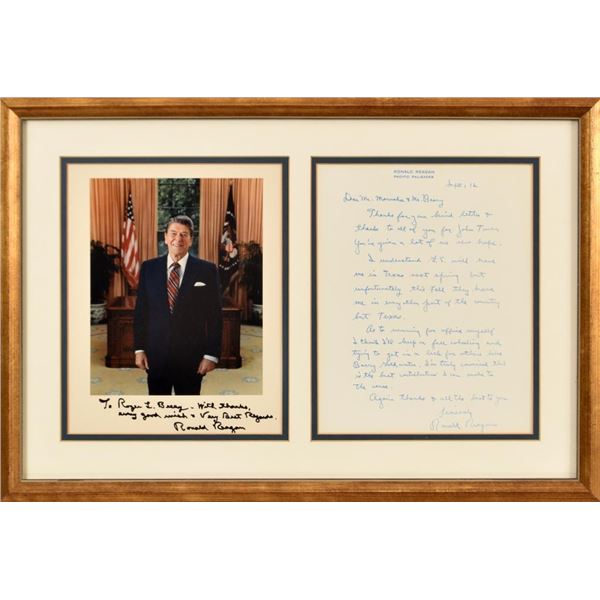 To Roger L. Berry - With thanks,
every good wish & Very Best Regards.
Ronald Reagan
RONALD REAGAN
PACIFIC PALISADES
Sept. 12
Dear Mr. & Mr. Berry
Thanks for your kind letter &
thanks to all of you for John Tower.
You've given a lot of us new hope.
I understand G.E. will have
me in Texas next spring but
unfortunately this Fall they have
me in every other part of the country
but Texas.
As to running for office myself
I think I'll keep on full wheeling and
trying to get in a lick for others like
Barry Goldwater. I'm truly convinced this
is the best contribution I can make to
the cause.
Again thanks & all the best to you
Sincerely
Ronald Reagan